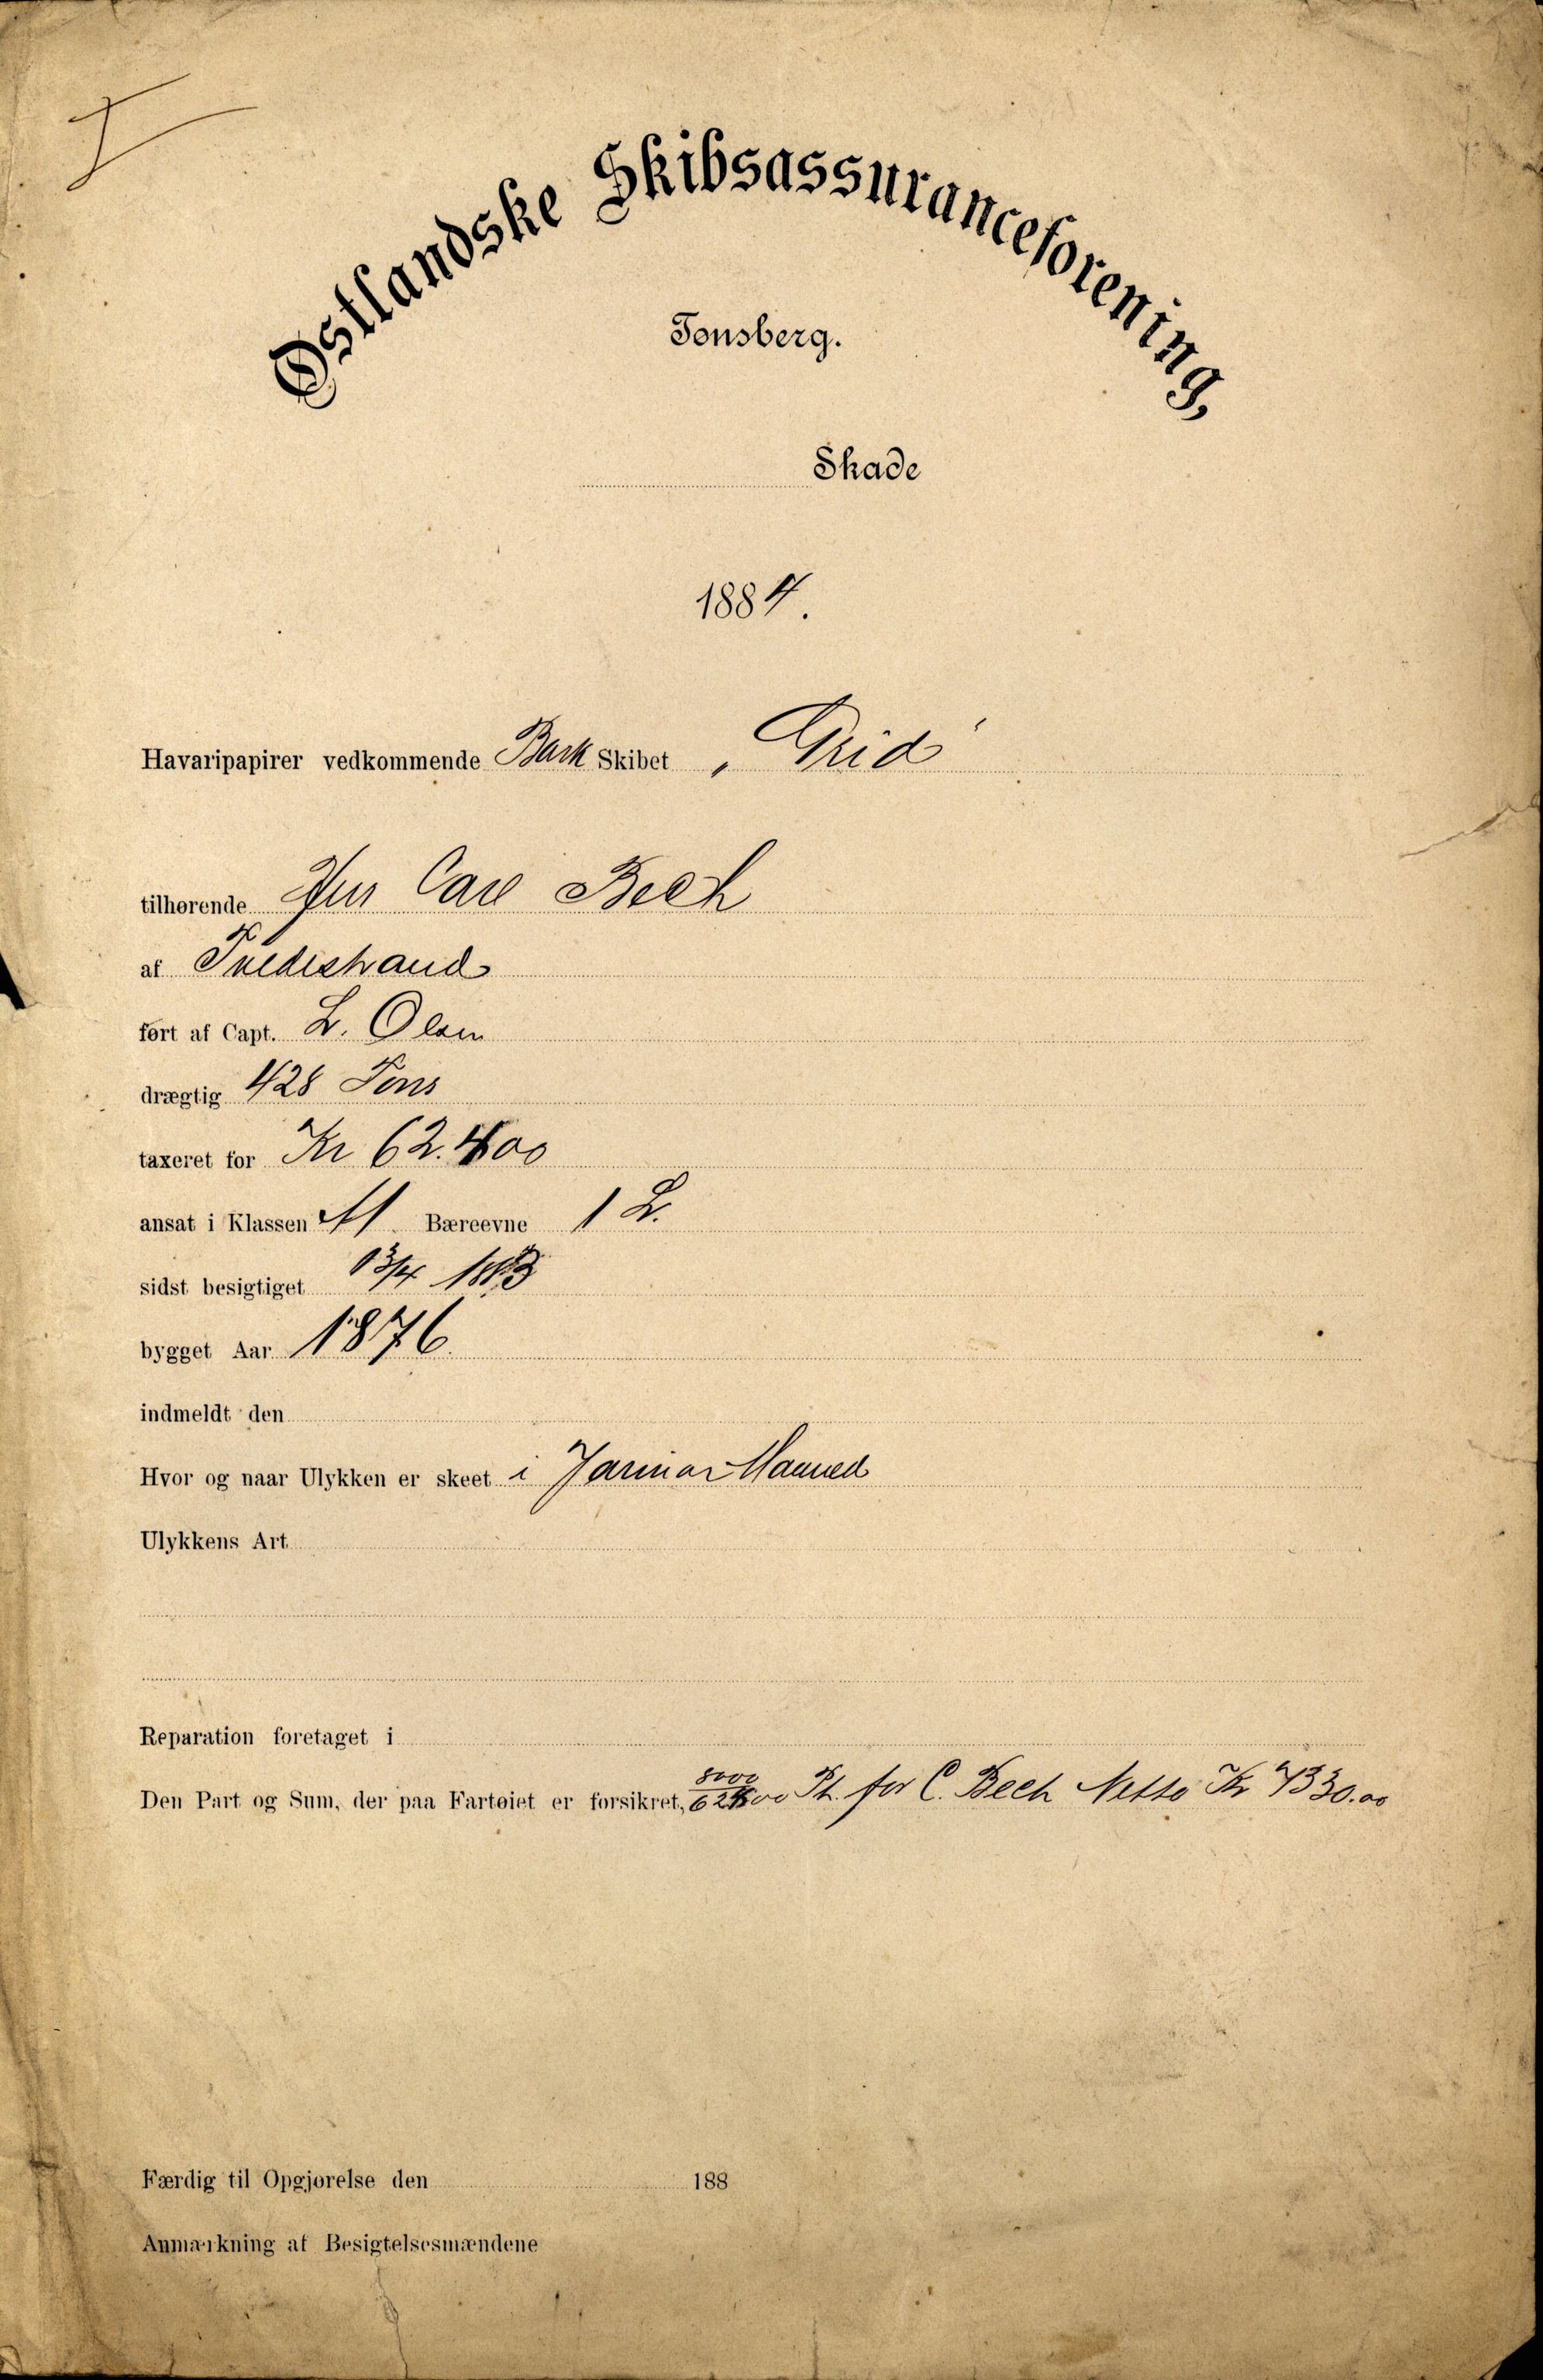 Østlandske Skibsassuranceforening,
Tønsberg.
Skade
1884.
Havaripapirer vedkommende Bark Skibet „Grid"
tilhørende Hrr Carl Bech
af Tvedestrand
ført af Capt. L. Olsen
drægtig 428 Tons
taxeret for Kr 62.400
ansat i Klassen A1 Bæreevne 1 L.
sidst besigtiget 13/4 1883
bygget Aar 1876.
indmeldt den
Hvor og naar Ulykken er skeet i Januar Maaned
Ulykkens Art
Reparation foretaget i
Den Part og Sum, der paa Fartøiet er forsikret, 8000/62400 Pt. for C. Bech Netto Kr 7330.00
Færdig til Opgjørelse den 188
Anmærkning af Besigtelsesmændene